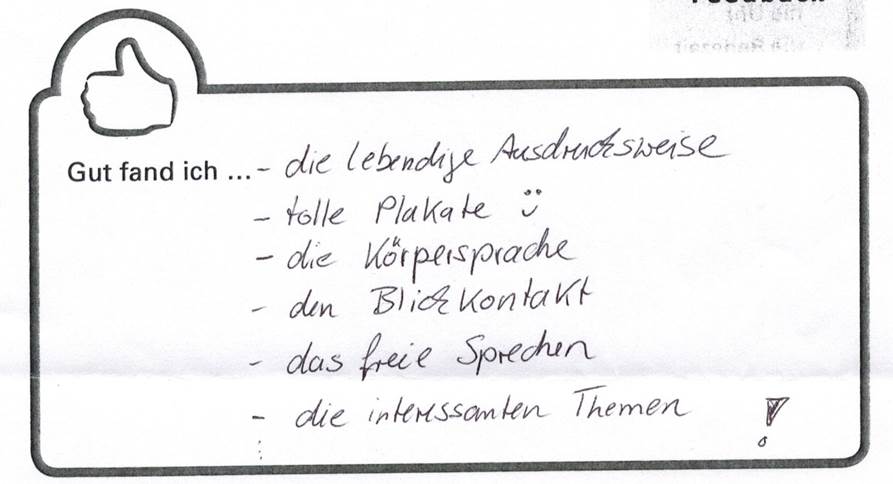 Feedback
Gut fand ich ... - die lebendige Ausdrucksweise
- tolle Plakate ü
- die Körpersprache
- den Blickkontakt
- das freie Sprechen
- die interessanten Themen !